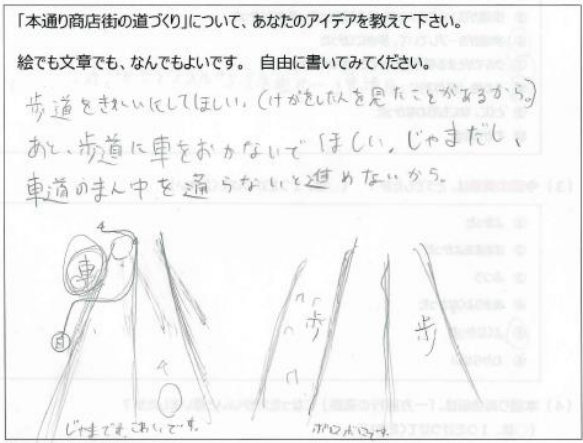 「本通り商店街の道づくり」について、あなたのアイデアを教えて下さい。
絵でも文章でも、なんでもよいです。 自由に書いてみてください。
歩道をきれいにしてほしい。(けがをした人を見たことがあるから。)
あと、歩道に車をおかないでほしい。じゃまだし、
車道のまん中を通らないと進めないから。
車
自
歩
歩
じゃまですし、こわいです。
ボロボロです。